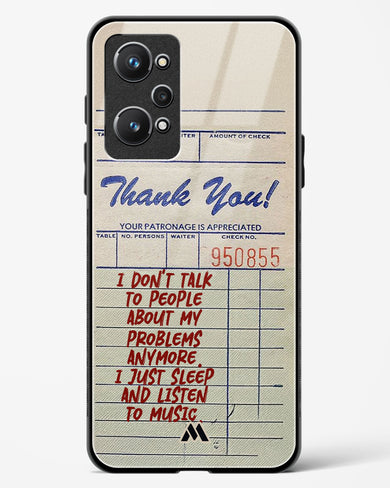 TA ITER AMOUNT OF CHECK
Thank You!
YOUR PATRONAGE IS APPRECIATED
TABLE NO. PERSONS WAITER CHECK NO.
950855
I DON'T TALK
TO PEOPLE
ABOUT MY
PROBLEMS
ANYMORE.
I JUST SLEEP
AND LISTEN
TO MUSIC.